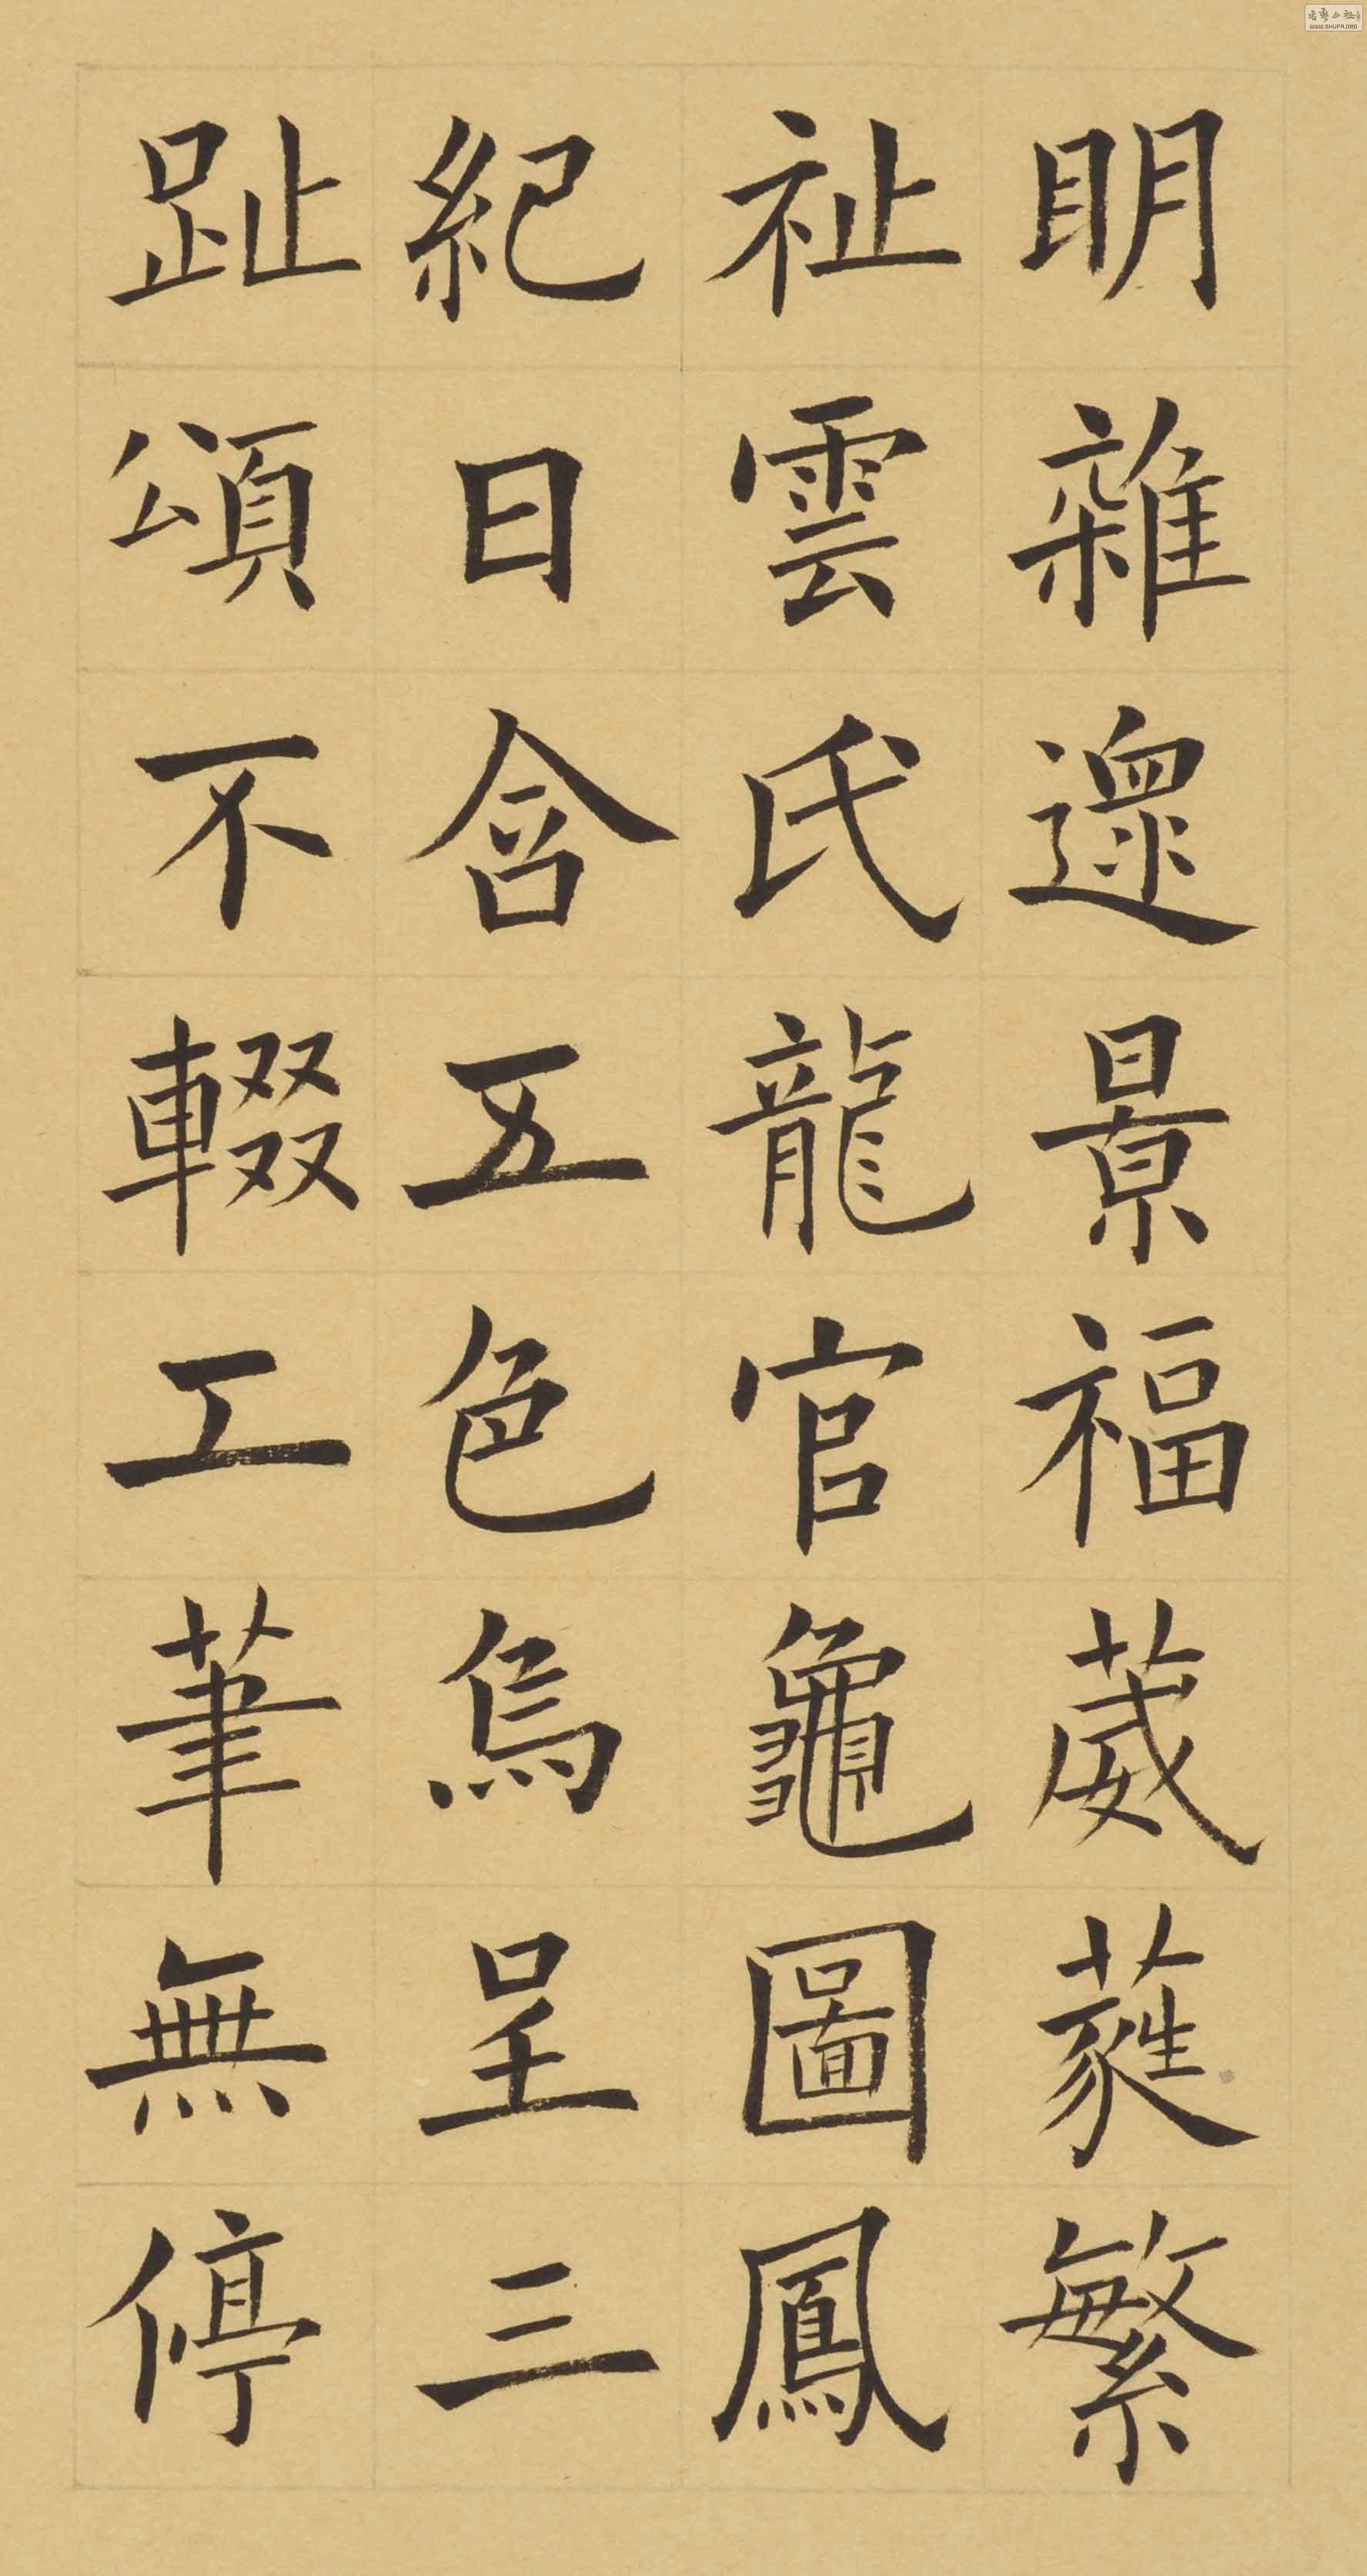 明雜遝景福葳蕤繁
祉雲氏龍官龜圖鳳
紀日含五色烏呈三
趾頌不輟工筆無停
WWW.SHUPR.ORG